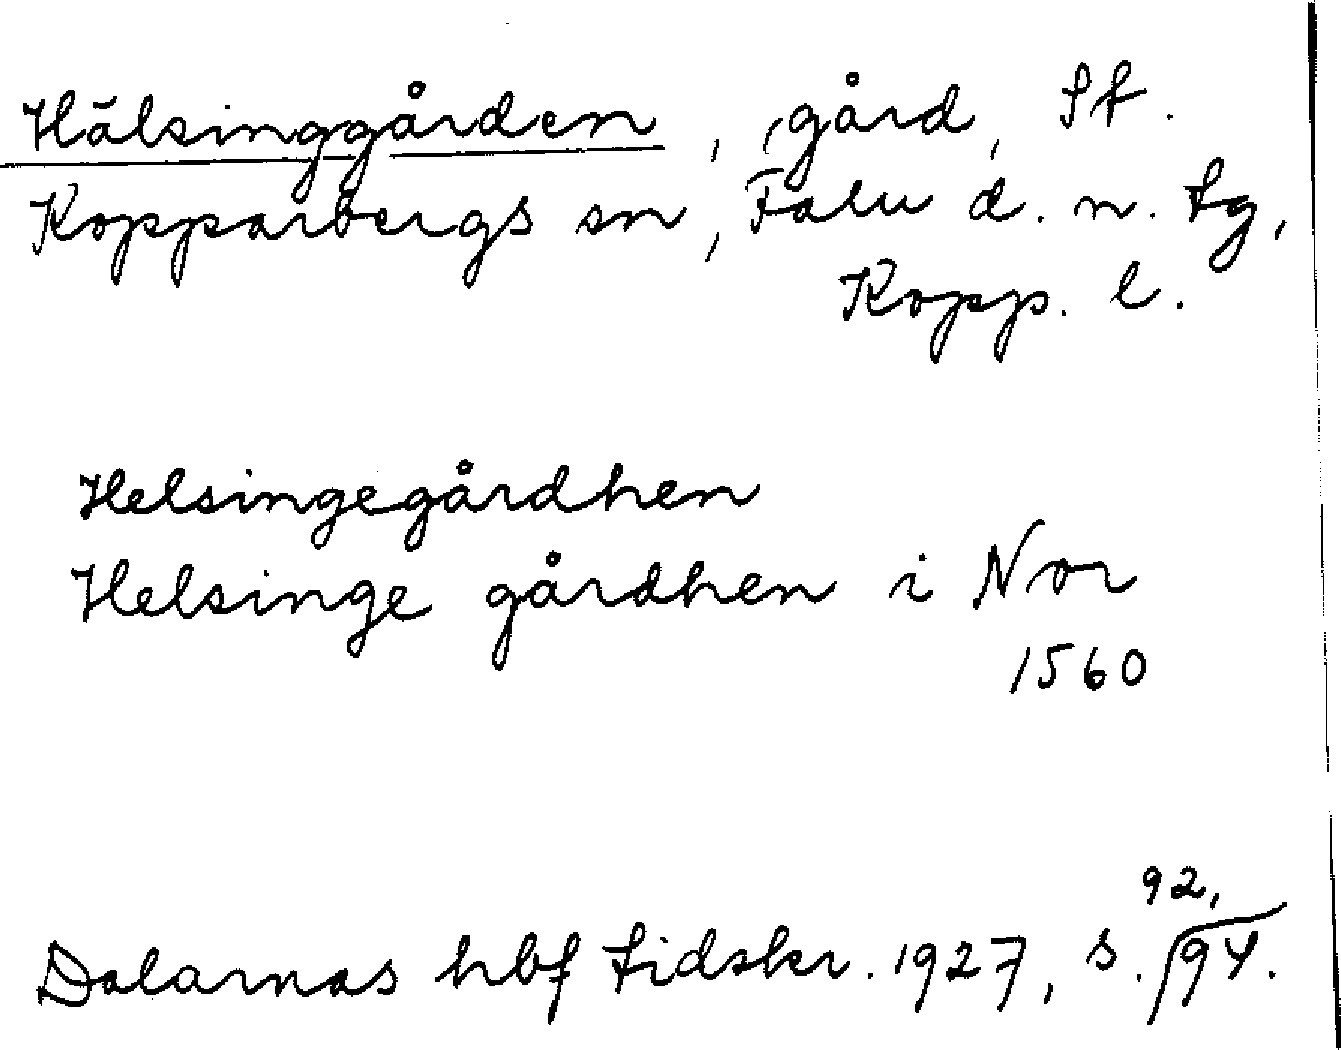 Hälsinggården, gård, St.
Kopparbergs sn, Falu d. n. tg,
Kopp. l.
Helsingegårdhen
Helsinge gårdhen i Nor
1560
92,
Dalarnas hbf tidskr. 1927, s. 94.